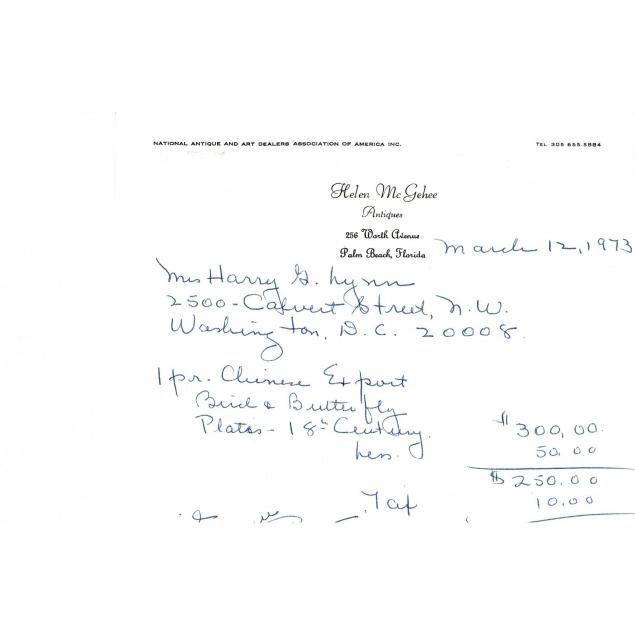 NATIONAL ANTIQUE AND ART DEALERS ASSOCIATION OF AMERICA INC. TEL 305 655.5884
Helen McGehee
Antiques
256 Worth Avenue
Palm Beach, Florida
March 12, 1973
Mrs Harry G. Lynn
2500 - Calvert Street, N.W.
Washington, D.C. 20008
1 pr. Chinese Export
Bird & Butterfly
Plates - 18th Century. $300.00
less. 50.00
$250.00
Tax 10.00